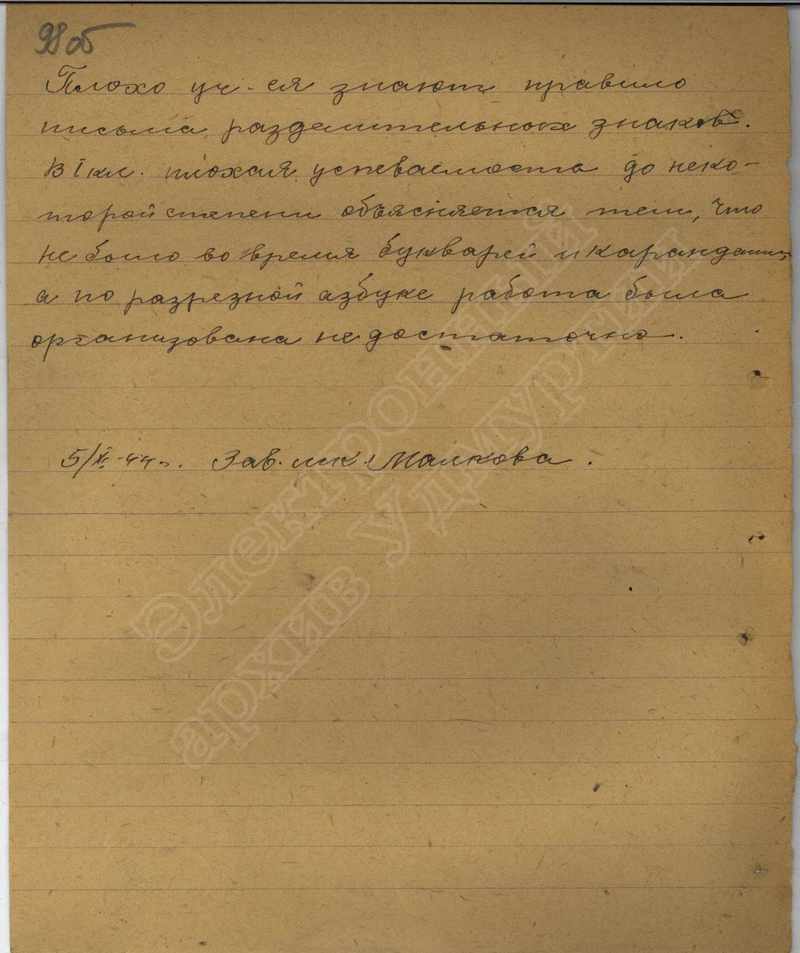 98 об
Плохо уч-ся знают правило
письма разделительных знаков.
В I кл. плохая успеваемость до неко-
торой степени объясняется тем, что
не было во время букварей и карандашей
а по разрезной азбуке работа была
организована недостаточно.
5/XI-44 г. Зав. шк. Малкова.
Электронный
архив Удмуртии